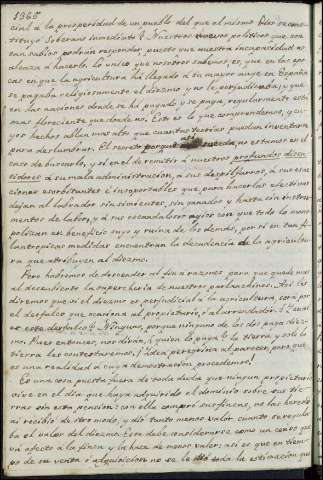 1365
cial á la prosperidad de un pueblo del que el mismo Dios se cons-
tituyó Soberano inmediato? Nuestros nuevos políticos que son
tan sabios podrán responder, puesto que nuestra incapacidad no
alcanza á hacerlo. Lo único que nosotros sabemos, es, que en las épo-
cas en que la agricultura ha llegado á su mayor auge en España
se pagaba religiosamente el diezmo y no le perjudicaba; y que
en las naciones donde se há pagado y se paga regularmente está
mas floreciente que donde no. Esto es lo que comprendemos, y cu-
yos hechos hablan mas alto que cuantas teorías puedan inventarse
para deslumbrar. El secreto porque suceda, no estamos en el
caso de buscarlo, y si en el de remitir á nuestros profundos discu-
tidores á su mala administracion, á sus despilfarros, á sus exac-
ciones exorbitantes é insoportables que para hacerlas efectivas
dejan al labrador sin simientes, sin ganados y hasta sin instru-
mentos de labor, y á sus escandalosos agios con que todo lo mono-
polizan en beneficio suyo y ruina de los demás, por si en tan fi-
lantrópicas medidas encuentran la decadencia de la agricultu-
ra que atribuyen al diezmo.
Pero habremos de descender al fin á razones para que quede mas
al descubierto la superchería de nuestros parlanchines. Así les
diremos que si el diezmo es perjudicial á la agricultura, será por
el desfalco que ocasiona al propietario, ó al arrendador. ¿Y cuál
es este desfalco? Ninguno, porque ninguno de los dos paga diez-
mo. Pues entonces, nos dirán, ¿quién lo paga? La tierra y solo la
tierra les contestaremos. ¡Idea peregrina al parecer, pero que
es una realidad á cuya demostracion procedemos!
Es una cosa puesta fuera de toda duda que ningun propietario
vive en el dia que haya adquirido el dominio sobre sus tie-
rras sin esta pension: con ella compró sus fincas, no las heredó
ni recibió de otro modo, y dió tanto menos valor cuanto se regula-
ba el valor del diezmo. Este debe considerarse como un censo que
vá afecto á la finca y la hace de menos valor; asi es que en tiem-
po de su venta ó adquisicion no se le dió toda la estimacion que